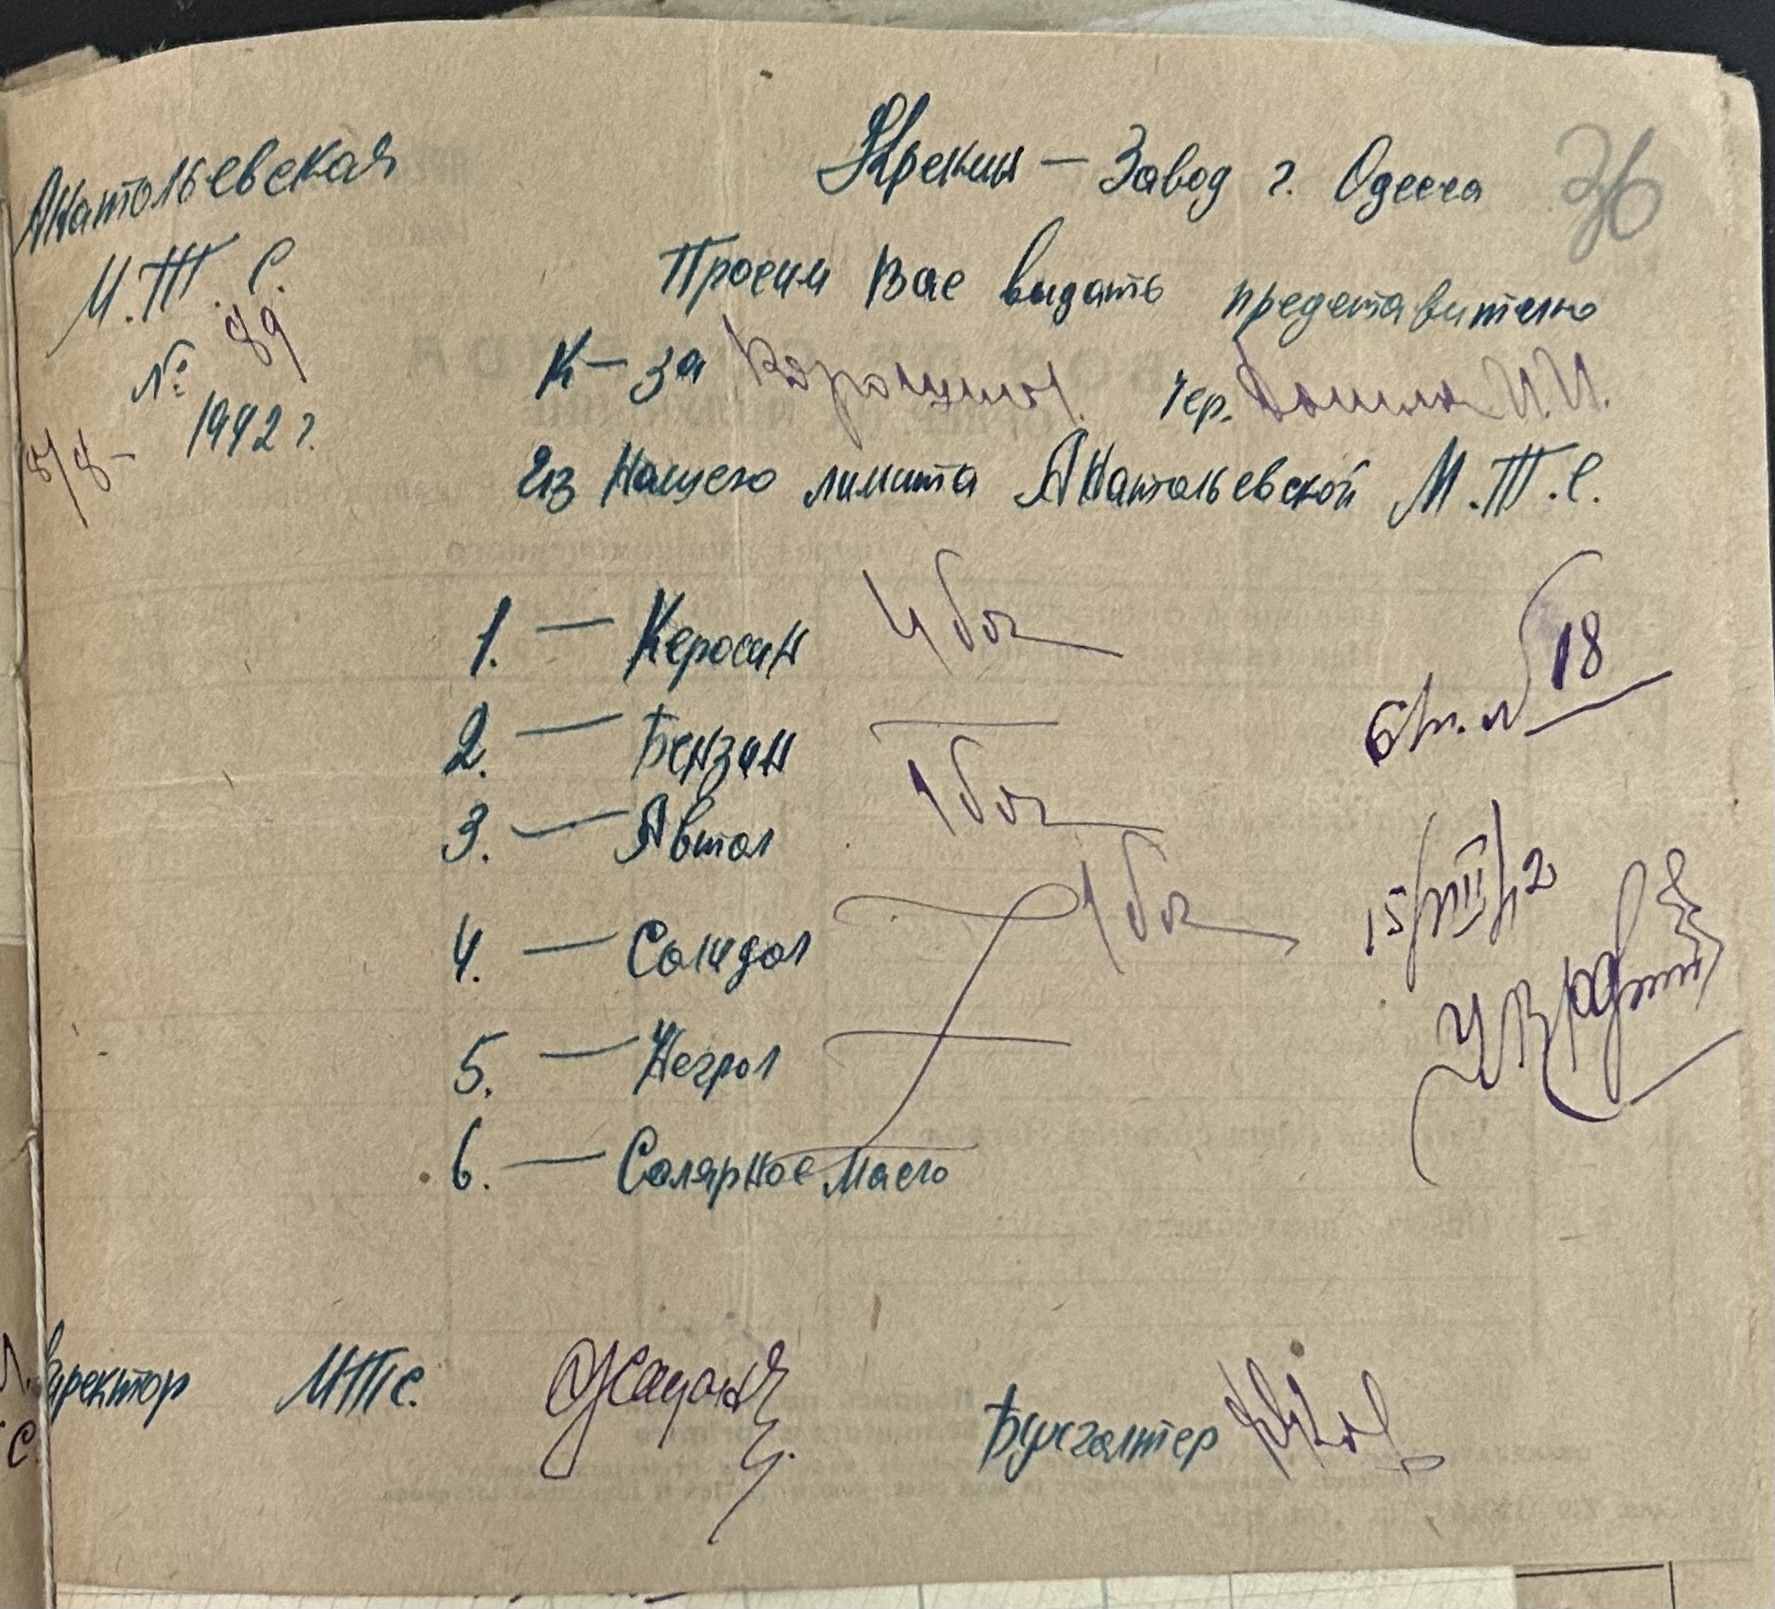 Анатольевская
М.Т.С.
№ 89
8/8- 1942 г.
Крекин — Завод г. Одесса
36
Просим Вас выдать представителю
К-за чер. И.И.
Из Нашего лимита Анатольевской М.Т.С.
1. — Керосин 4 боч
2. — Бензин —
3. — Автол 1 боч
4. — Солидол 1 боч
5. — Негрол —
6. — Солярное Масло —
18
15/VIII 42
Директор МТС.
Бухгалтер